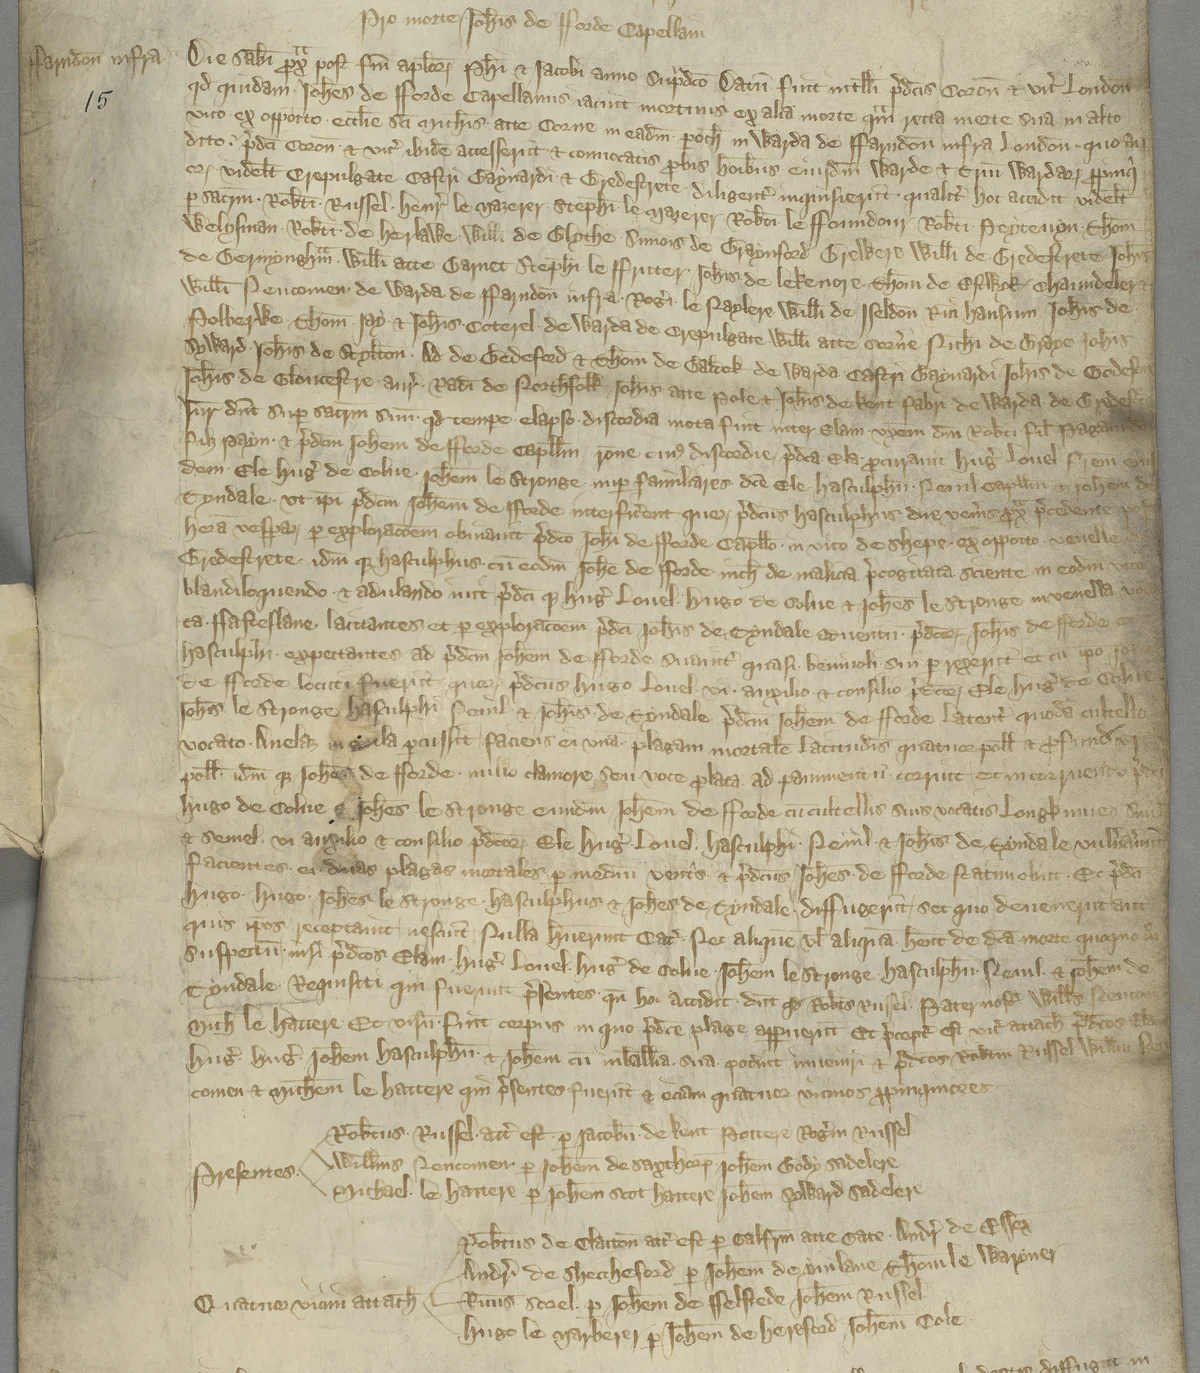 Pro morte Joħis de fforde Capellani
Farndon infra
15
Die Sab̄ti px̄ post fm̄ aplor̄ Ph̄i & Jacobi anno sup̄dc̄o Datū fuit intll̄i p̄dc̄is Coron̄ & vic̄ London̄
qd quidam Joħes de fforde Capellanus iacuit mortuus ex alia morte qᵃm recta morte sua in alto
vico ex opposito ecclīe sc̄i Mich̄is atte Corne in eadm̄ poch̄ in Warda de ffarndon̄ infra London̄ quo au
dito p̄dc̄i Coron̄ & vic̄ ibidē accesserūt & convocatis pbis hōibus eiusdm̄ Warde & triū Wardar̄ ppinq̄i
or̄ videlt̄ Crepulgate Castri Baynardi & Bredestrete diligent̄ inquisierūt qualit̄ hoc accidit videlt̄
p sacrm̄ Rob̄ti Russel Henr̄ le Mazerer Steph̄i le Mazerer Rob̄ti le ffoundour Rob̄ti Peytevyn Thom̄
Welysman Rob̄ti de Herlawe Willi de Blythe Simōis de Graynford Brewere Willi de Bredestrete Joħis
de Bermyngħᵃm Willi atte Barnet Steph̄i le ffriter Joħis de Lekenore Thom̄ de Estwick Chaundeler &
Willi Neucomen de Warda de ffarndon̄ infra Rog̃i le Naylere Willi de Iseldon Ric̄i Hansum Joħis de
Polberwe Thom̄ Jay & Joħis Coterel de Warda de Crepulgate Willi atte Corn̄e Nich̄i de Braye Joħis
Syward Joħis de Ad de Bedeford & Thom̄ de de Warda Castri Baynardi Joħis de Bedeford
Joħis de Gloucestre aur̄ Rad̄i de Northfolk Joħis atte Pole & Joħis de Kent fabri de Warda de Bredest
Jur̄ dn̄t sup sacrm̄ suū qd tempe elapso discordia mota fuit inter Elam uxem dn̄i Rob̄ti fil̄ Pagani
fitz Payn & p̄dcm̄ Joħem de fforde Capllm̄ rōne cuius discordie p̄dc̄a Ela pcuravit Hug̃ Lovel frem eius
dem Ele Hug̃ de Colne Joħem le Stronge nup familiares dc̄e Ele Hasculphū Nevil Capllm̄ & Joħem de
Tyndale ut ip̄i p̄dcm̄ Joħem de fforde interfic̄ent quor̄ p̄dcus Hasculphus die ven̄is px̄ p̄cedente post
horā vespar̄ p exploracōem obviavit p̄dc̄o Joħi de fforde Capll̄o in vico de Shepe ex opposito venelle
Bredestrete idm̄ qȝ Hasculphus cū eodm̄ Joħe de fforde inch̄ de malicia p̄cogitata sciente in eodm̄ vico
blandiloquendo & adulando ivit p̄dc̄i qȝ Hug̃ Lovel Hugo de Colne & Joħes le Stronge in venella vo
ca ffasteslane latitantes et p exploracōem p̄dc̄i Joħis de Tyndale adventū p̄dcor̄ Joħis de fforde et
Hasculphi expectantes ad p̄dcm̄ Joħem de fforde suavit̄ quasi benivoli sui prexerūt et cū ip̄o Joħ
de fforde locuti fuerūt quor̄ p̄dcus Hugo Lovel vi auxilio & consilio p̄dcor̄ Ele Hug̃ de Colne
Joħis le Stronge Hasculphi Nevil & Joħis de Tyndale p̄dcm̄ Joħem de fforde latent̄ quodā cultello
vocato Anelaz in gula pcussit faciens ei unā plagam mortalē latitudīs quatuor poll̄ & pfund̄ vi
poll̄ idm̄ qȝ Joħes de fforde nullo clamore seu voce plata ad pavimentū corruit et in corruendo p̄dc̄i
Hugo de Colne & Joħes le Stronge eundm̄ Joħem de fforde cū cultellis suis vocatis Longknives simul
& semel vi auxilio & consilio p̄dcor̄ Ele Hug̃ Lovel Hasculphi Nevil & Joħis de Tyndale vuln̄averūt
facientes ei duas plagas mortales p mediū ventr̄s & p̄dcus Joħes de fforde statim obiit Et p̄dc̄i
Hugo Hugo Joħes le Stronge Hasculphus & Joħes de Tyndale diffugerūt set quo devenerūt aut
quis ip̄os receptavit nesciūt Nulla h̄uerunt Catᵃ Nec aliquē ul̄ aliquā hēnt de dc̄a morte quoquo mo
suspectū nisi p̄dcos Elam Hug̃ Lovel Hug̃ de Colne Joħem le Stronge Hasculphū Nevil & Joħem de
Tyndale Requisiti qui fuerūt p̄sentes qn̄ hoc accidit dūt qd Rob̄ts Russel Paternost̄ Willi̅s Neucom
Mich̄ le Hattere Et visū fuit corpus in quo p̄dc̄e plage appuerūt Et p̄cept̄ est vic̄ attach̄ p̄dcos Elam
Hug̃ Hug̃ Joħem Hasculphū & Joħem cū in ballia sua pot̄int inveniri & p̄dcos Rob̄tm Russel Willm̄ Neu
comen & Mich̄em le Hattere qui p̄sentes fuerūt & eciam quatuor vicinos ppinquiores
Presentes
Rob̄tus Russel att̄ est p Jacobū de Kent Pottere Rog̃m Russel
Willi̅us Neucomen p Joħem de Saxthorp Joħem Gody Sadelere
Michael le Hattere p Joħem Scot Hattere Joħem Syward Sadelere
Quatuor vicini attach̄
Rob̄tus de Clacton att̄ est p Galfrm̄ atte Gate Andr̄ de Essex
Andr̄ de Shecheford p Joħem de Yvilane Thom̄ le Wayner
Ricus Sorel p Joħem de ffelstede Joħem Russel
Hugo le Marberer p Joħem de Hereford Joħem Cole